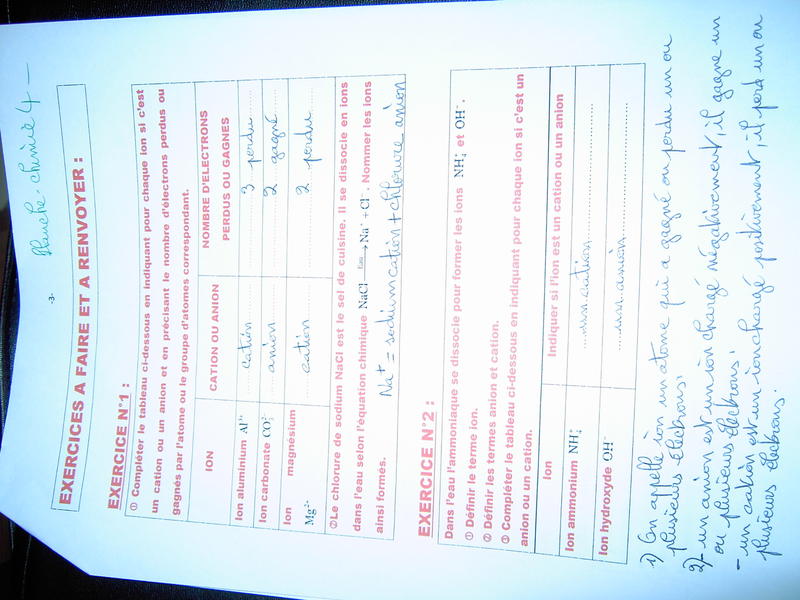 -3-
Planche-chimie 4 -
EXERCICES A FAIRE ET A RENVOYER :
EXERCICE N°1 :
① Compléter le tableau ci-dessous en indiquant pour chaque ion si c'est
un cation ou un anion et en précisant le nombre d'électrons perdus ou
gagnés par l'atome ou le groupe d'atomes correspondant.
ION CATION OU ANION NOMBRE D'ELECTRONS
PERDUS OU GAGNES
Ion aluminium Al³⁺ cation 3 perdu
Ion carbonate CO₃²⁻ anion 2 gagné
Ion magnésium
Mg²⁺ cation 2 perdu
②Le chlorure de sodium NaCl est le sel de cuisine. Il se dissocie en ions
dans l'eau selon l'équation chimique NaCl —Eau→ Na⁺ + Cl⁻. Nommer les ions
ainsi formés.
Na+ = sodium cation + chlorure anion
EXERCICE N°2 :
Dans l'eau l'ammoniaque se dissocie pour former les ions NH₄⁺ et OH⁻.
① Définir le terme ion.
② Définir les termes anion et cation.
③ Compléter le tableau ci-dessous en indiquant pour chaque ion si c'est un
anion ou un cation.
Ion Indiquer si l'ion est un cation ou un anion
Ion ammonium NH₄⁺ un cation
Ion hydroxyde OH⁻ un anion
1) On appelle ion un atome qui a gagné ou perdu un ou
plusieurs électrons.
2)- un anion est un ion chargé négativement, il gagne un
ou plusieurs électrons.
- un cation est un ion chargé positivement, il perd un ou
plusieurs électrons.